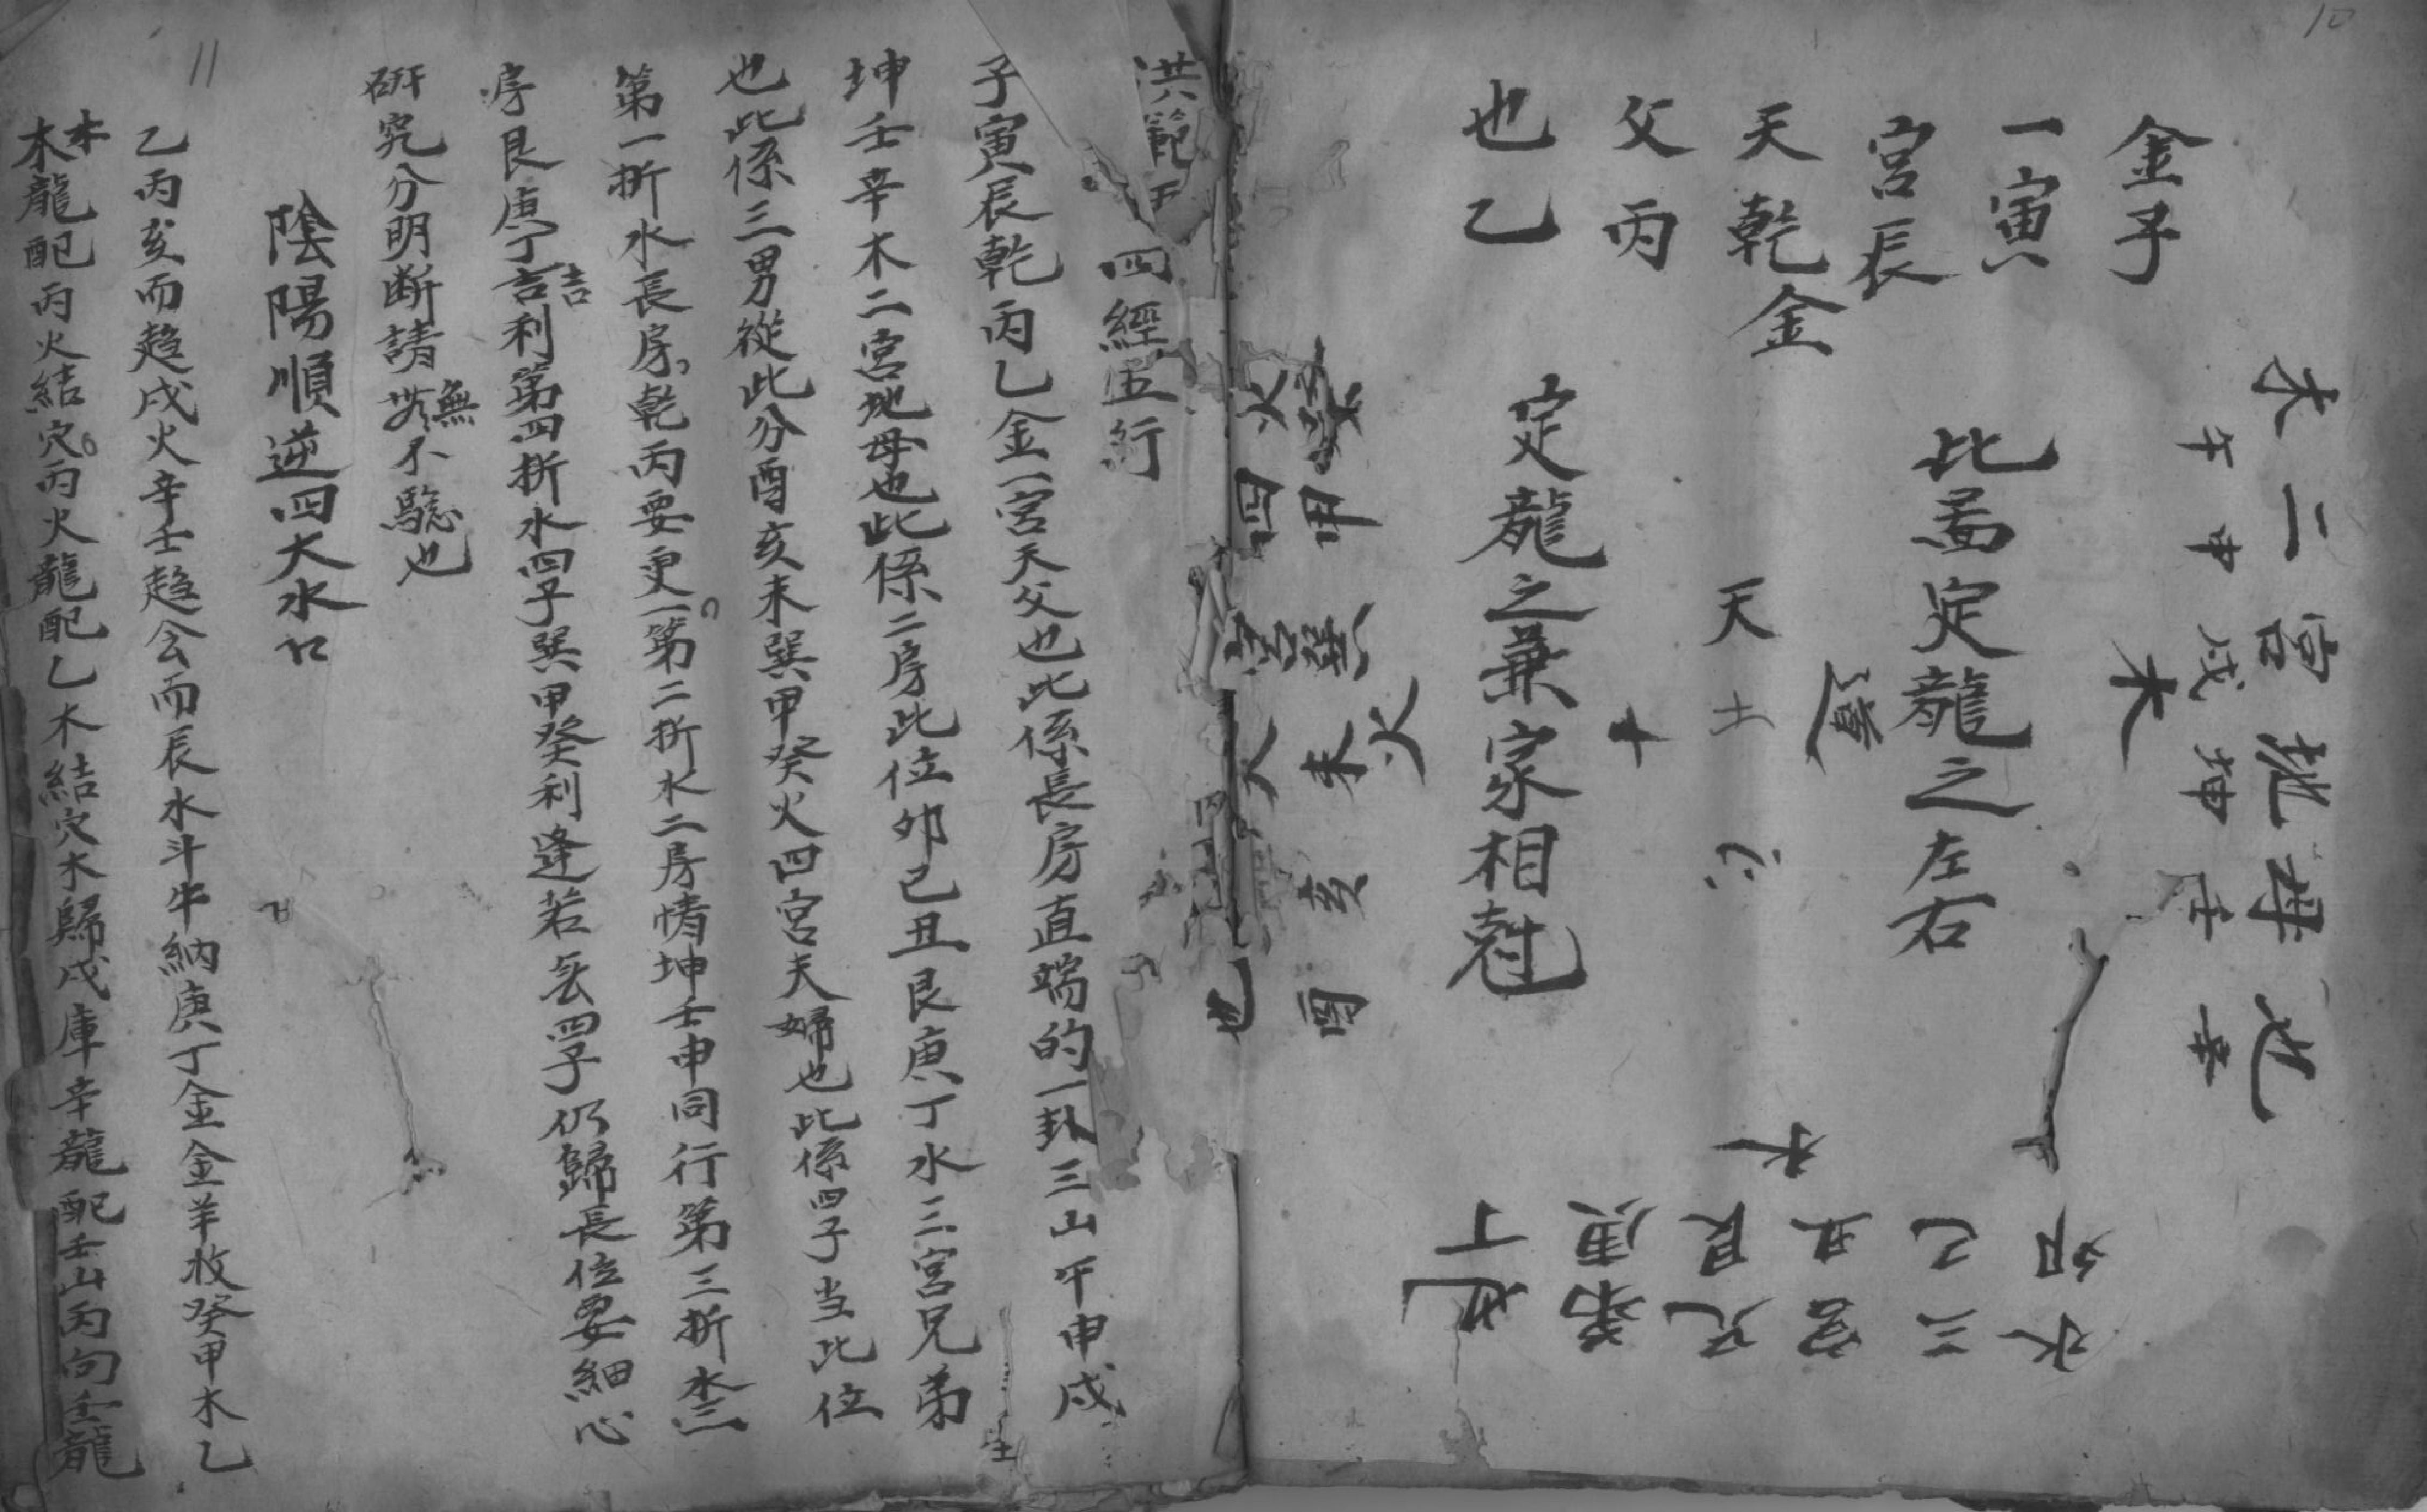 10
金子
一寅
宮辰
天乾金
父丙
也乙
木二宮地母也
午申戌坤壬辛
木
此盖定龍之左右
天
定龍之兼家相尅
火四宮夫婦也
巽甲癸未亥酉
火
水三宮兄弟也
卯巳丑艮庚丁
水
11
洪範五
四經五行
子寅辰乾丙乙金一宮天父也此係長房直端的一卦三山午申戌
坤壬辛木二宮地母也此係二房此位卯巳丑艮庚丁水三宮兄弟
也此係三男從此分酉亥未巽甲癸火四宮夫婦也此係四子当此位
第一折水長房乾丙要更一第二折水二房情坤壬申同行第三折水三
房艮庚丁吉吉利第四折水四子巽甲癸利逢若丢四子仍歸長位要細心
研究分明断請無不驗也
陰陽順逆四大水口
乙丙亥而趋戌火辛壬趋会而辰水斗牛納庚丁金金羊收癸甲木乙
木木龍配丙火結穴丙火龍配乙木結穴木歸戌庫辛龍配壬山丙向壬龍